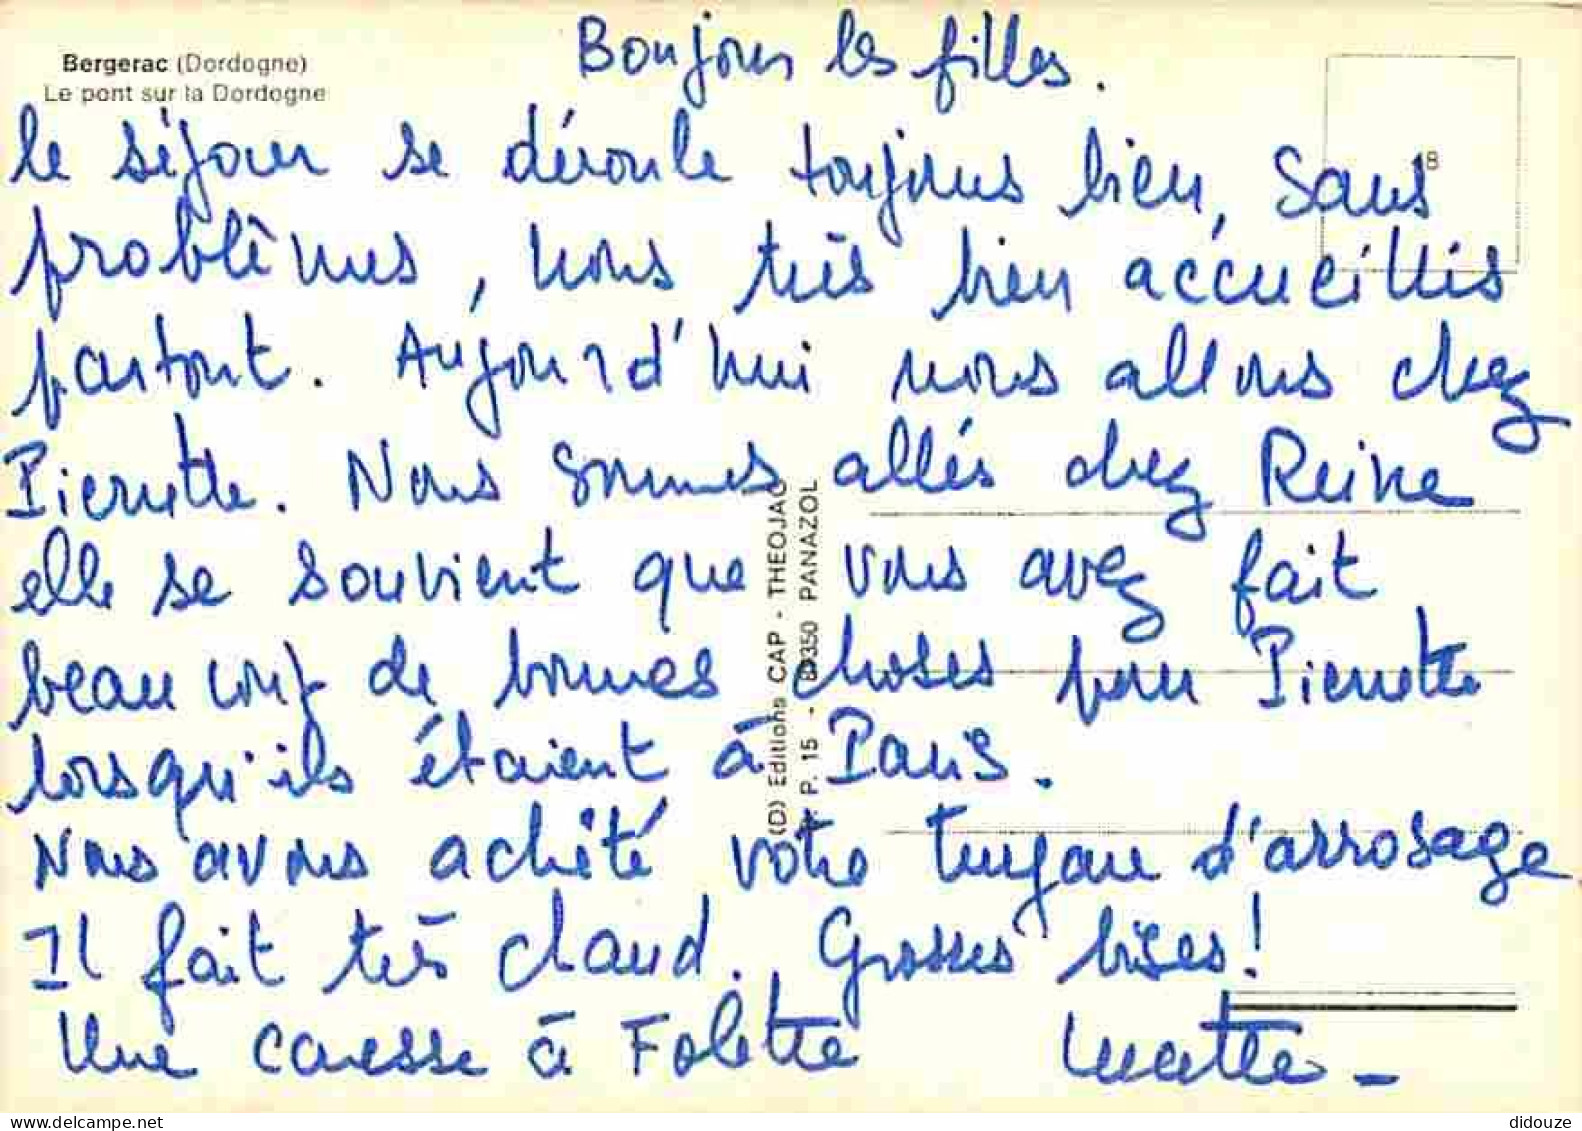 Bergerac (Dordogne)
Le pont sur la Dordogne
Bonjour les filles.
le séjour se déroule toujours bien, sans
problêmes, nous très bien accueillis
partout. Aujourd'hui nous allons chez
Pierrette. Nous sommes allés chez Reine
elle se souvient que vous avez fait
beaucoup de bonnes choses pour Pierrette
lorsqu'ils étaient à Paris.
Nous avons acheté votre tuyau d'arrosage
Il fait très chaud. Grosses bises!
Une caresse à Folette Lucette -
(D) Editions CAP - THEOJAC
P. 15 - 87350 PANAZOL
18
didouze